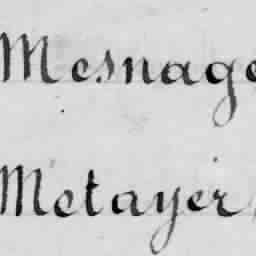 Mesnage
Metayer